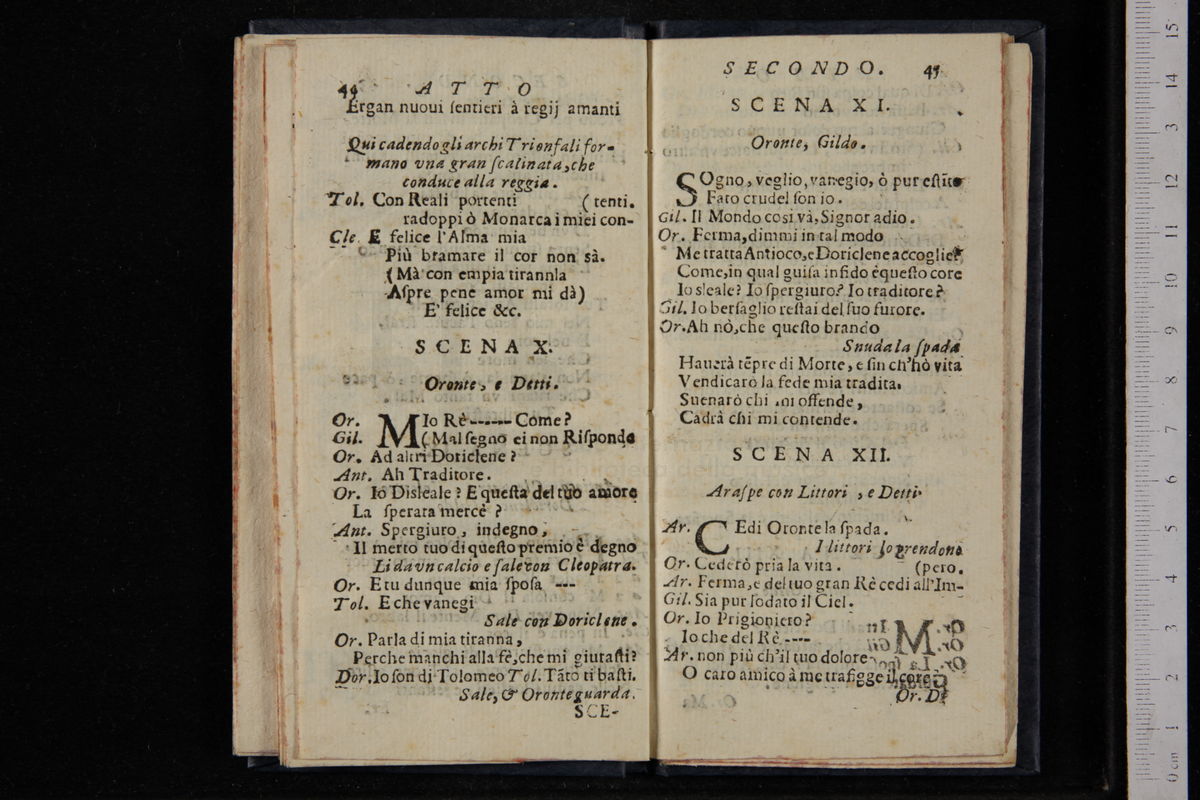 44 A T T O
Ergan nuoui ſentieri à regij amanti
Qui cadendo gli archi Trionfali for-
mano vna gran ſcalinata, che
conduce alla reggia.
Tol. Con Reali portenti (tenti.
radoppi ò Monarca i miei con-
Cle. E felice l'Alma mia
Più bramare il cor non sà.
(Mà con empia tirannìa
Aſpre pene amor mi dà)
E' felice &c.
SCENA X.
Oronte, e Detti.
Or. MIo Rè ------ Come?
Gil. (Mal ſegno ei non Riſponde
Or. Ad altri Doriclene?
Ant. Ah Traditore.
Or. Io Disleale? E queſta del tuo amore
La ſperata mercè?
Ant. Spergiuro, indegno,
Il merto tuo di queſto premio è degno
Li da vn calcio e ſale con Cleopatra.
Or. E tu dunque mia ſpoſa ---
Tol. E che vanegi
Sale con Doriclene.
Or. Parla di mia tiranna,
Perche manchi alla fè, che mi giuraſti?
Dor. Io ſon di Tolomeo Tol. Tãto ti baſti.
Sale, & Oronte guarda.
SCE-
SECONDO. 45
SCENA XI.
Oronte, Gildo.
SOgno, veglio, vanegio, ò pur eſtĩto
Fato crudel ſon io.
Gil. Il Mondo cosi và, Signor adio.
Or. Ferma, dimmi in tal modo
Me tratta Antioco, e Doriclene accoglie?
Come, in qual guiſa infido è queſto core
Io sleale? Io ſpergiuro? Io traditore?
Gil. Io berſaglio reſtai del ſuo furore.
Or. Ah nò, che queſto brando
Snuda la ſpada
Hauerà tẽpre di Morte, e fin ch'hò vita
Vendicarò la fede mia tradita.
Suenarò chi mi offende,
Cadrà chi mi contende.
SCENA XII.
Araſpe con Littori, e Detti.
Ar. CEdi Oronte la ſpada.
I littori lo prendono
Or. Cederò pria la vita. (pero.
Ar. Ferma, e del tuo gran Rè cedi all'Im-
Gil. Sia pur lodato il Ciel.
Or. Io Prigioniero?
Io che del Rè ----
Ar. non più ch'il tuo dolore
O caro amico à me trafigge il core
Or. Di